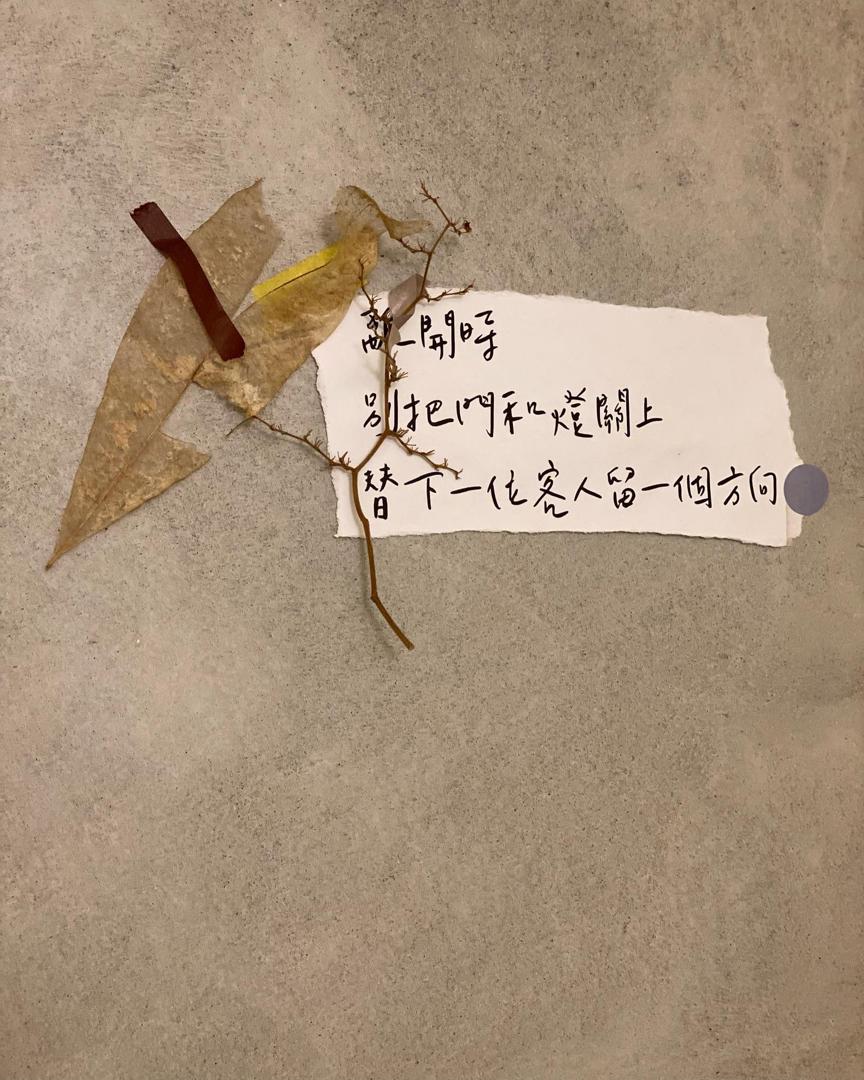 離開時
別把門和燈關上
替下一位客人留一個方向